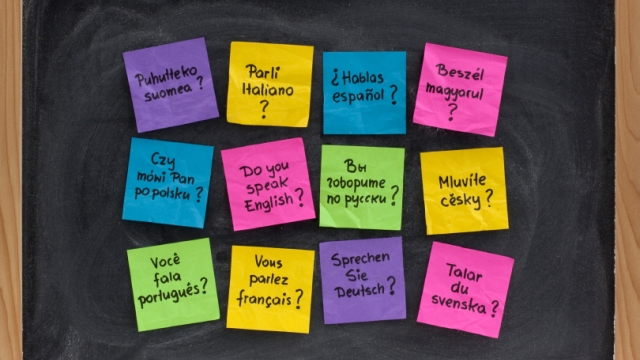 Puhutteko
suomea?
Parli
Italiano
?
¿Hablas
español?
Beszél
magyarul
?
Czy
mówi Pan
po polsku?
Do you
speak
English?
Вы
говорите
по русски?
Mluvíte
cěsky?
Você
fala
português?
Vous
parlez
français?
Sprechen
Sie
Deutsch?
Talar
du
svenska?